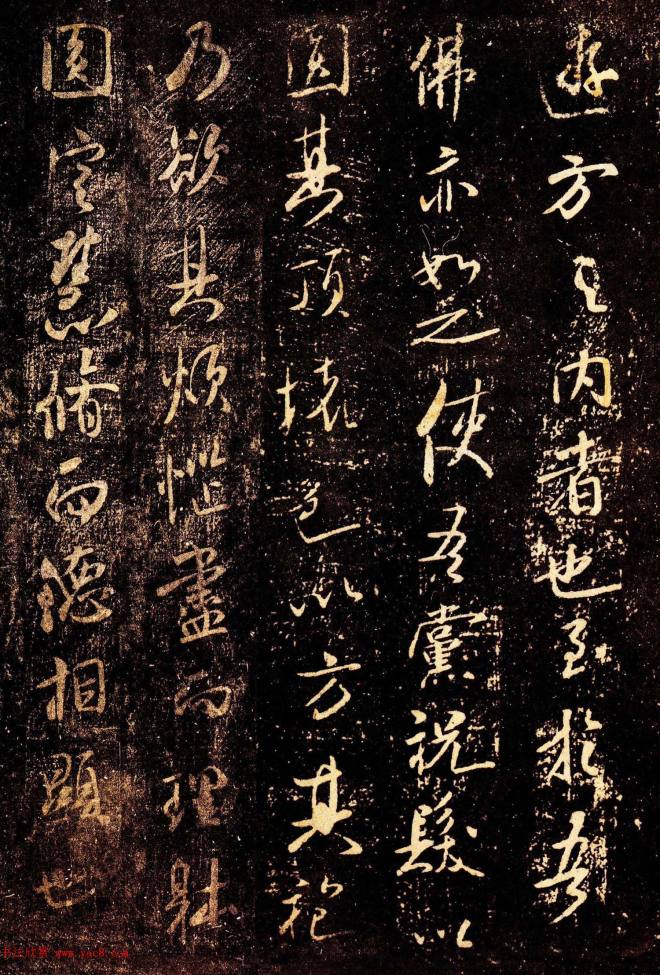 遊方之内者也至於吾
佛亦如之使吾黨祝髮以
圓其頂壞色以方其袍
乃欲其煩惱盡而理躰
圓定慧脩而德相顯也
书法欣赏 www.yac8.com